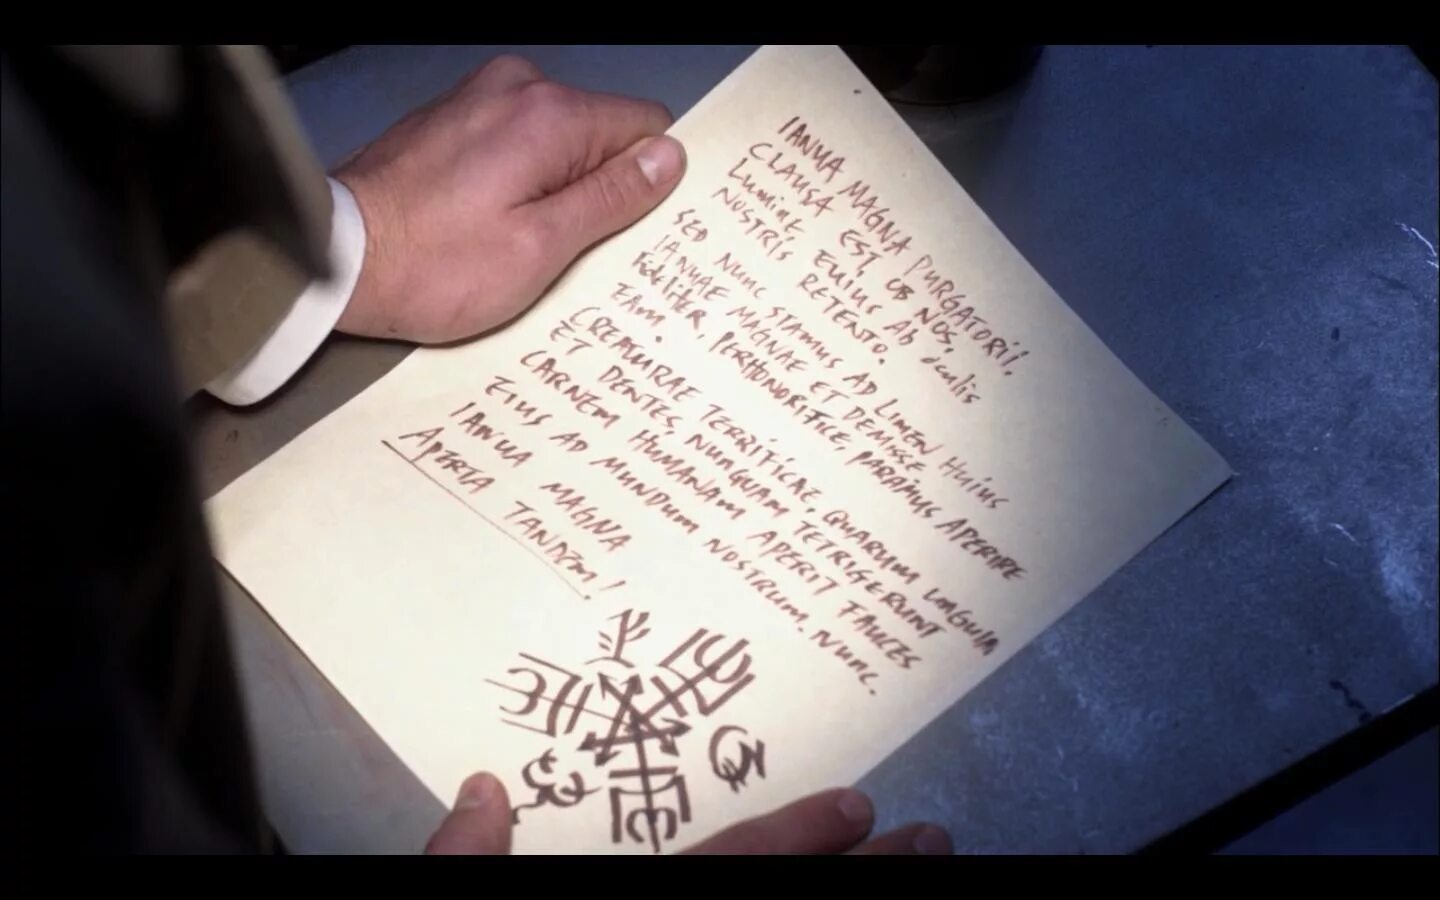 IANUA MAGNA PURGATORII,
CLAUSA EST OB NOS,
LUMINE EUIUS Ab OCULIS
NOSTRIS RETENTO.
SED NUNC STAMUS AD LIMEN HUIUS
IANUAE MAGNAE ET DEMISSE
FIDELITER, PERHONORIFICE, PARAMUS APERIRE
EAM.
CREATURAE TERRIFICAE, QUARUM UNGUIA
ET DENTES, NUNQUAM TETRIGERUNT
CARNEM HUMANAM APERIT FAUCES
EIUS AD MUNDUM NOSTRUM. NUNC.
IANUA MAGNA
APERTA TANDEM!